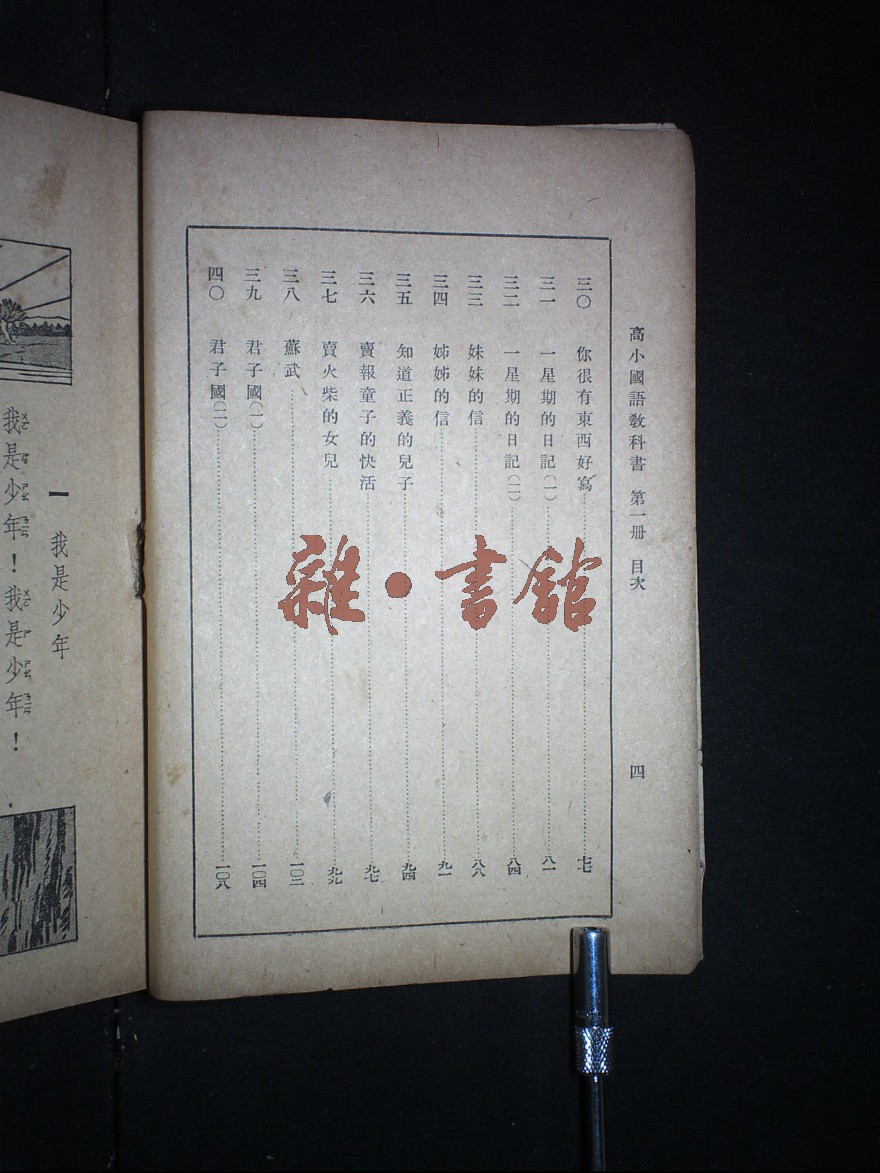 高小國語教科書 第一册 目次 四
三〇 你很有東西好寫 七七
三一 一星期的日記(一) 八一
三二 一星期的日記(二) 八四
三三 妹妹的信 八八
三四 姊姊的信 九一
三五 知道正義的兒子 九四
三六 賣報童子的快活 九七
三七 賣火柴的女兒 九九
三八 蘇武 一〇二
三九 君子國(一) 一〇四
四〇 君子國(二) 一〇八
雜·書館
一 我是少年
我是少年!我是少年!